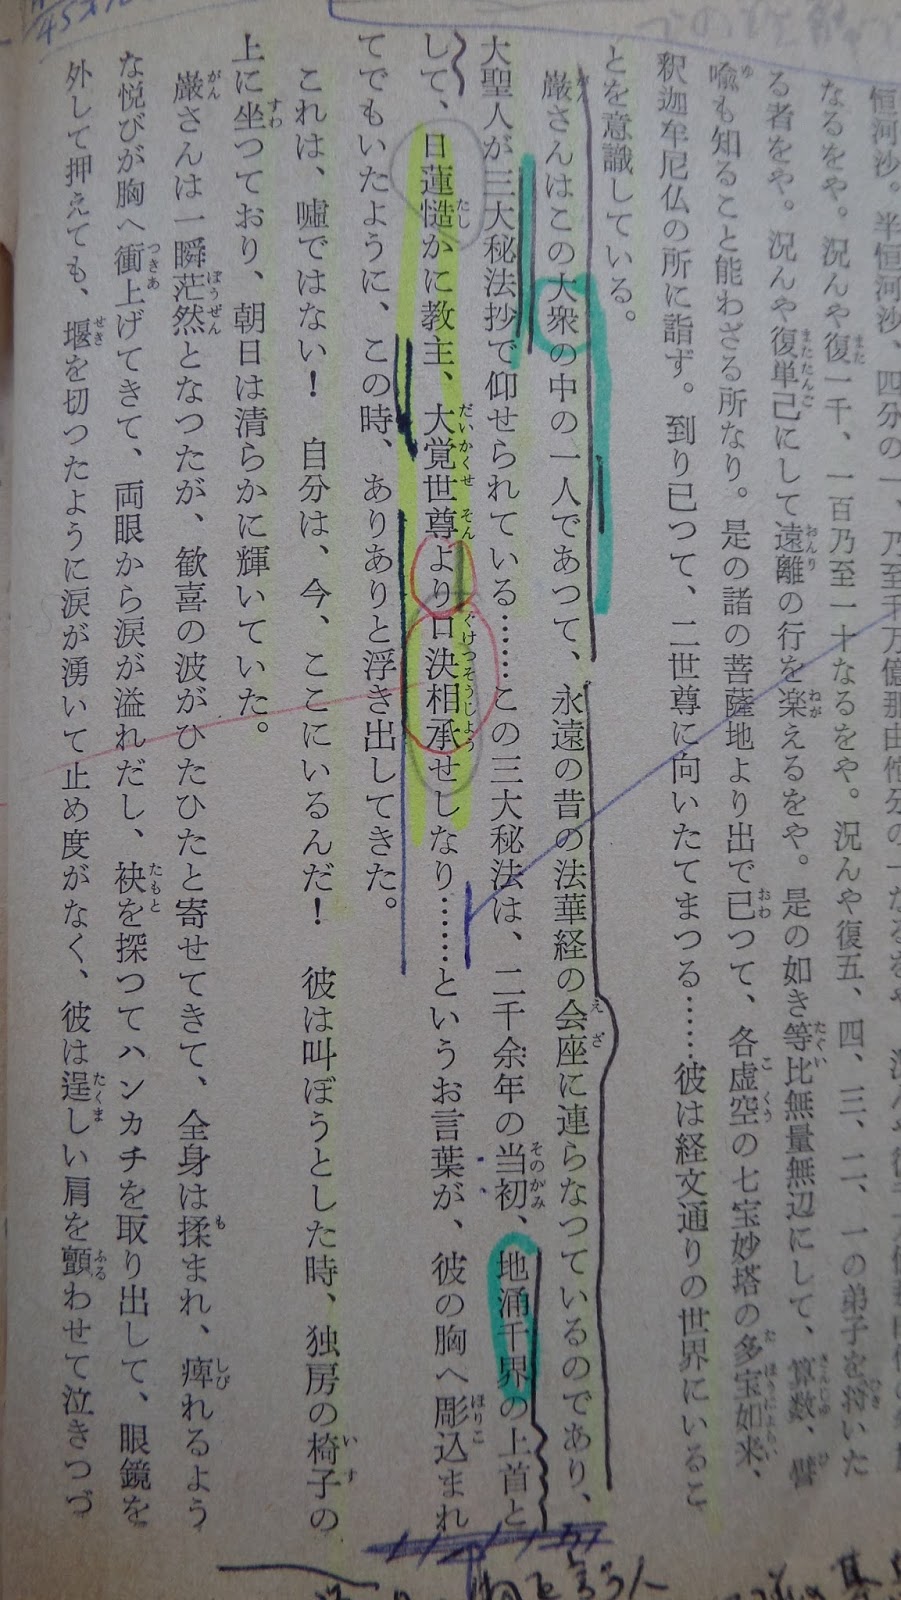 恒河沙。半恒河沙、四分の一、乃至千万億那由他分の一なるをや。
なるをや。況んや復一千、一百乃至一十なるをや。況んや復五、四、三、二、一の弟子を将いた
る者をや。況んや復単己にして遠離の行を楽えるをや。是の如き等比無量無辺にして、算数、譬
喩も知ること能わざる所なり。是の諸の菩薩地より出で已つて、各虚空の七宝妙塔の多宝如来、
釈迦牟尼仏の所に詣ず。到り已つて、二世尊に向いたてまつる……彼は経文通りの世界にいるこ
とを意識している。
厳さんはこの大衆の中の一人であつて、永遠の昔の法華経の会座に連らなつているのであり、
大聖人が三大秘法抄で仰せられている……この三大秘法は、二千余年の当初、地涌千界の上首と
して、日蓮慥かに教主、大覚世尊より口決相承せしなり……というお言葉が、彼の胸へ彫込まれ
てでもいたように、この時、ありありと浮き出してきた。
これは、嘘ではない！　自分は、今、ここにいるんだ！　彼は叫ぼうとした時、独房の椅子の
上に坐つており、朝日は清らかに輝いていた。
厳さんは一瞬茫然となつたが、歓喜の波がひたひたと寄せてきて、全身は揉まれ、痺れるよう
な悦びが胸へ衝上げてきて、両眼から涙が溢れだし、袂を探つてハンカチを取り出して、眼鏡を
外して押えても、堰を切つたように涙が湧いて止め度がなく、彼は逞しい肩を顫わせて泣きつづ